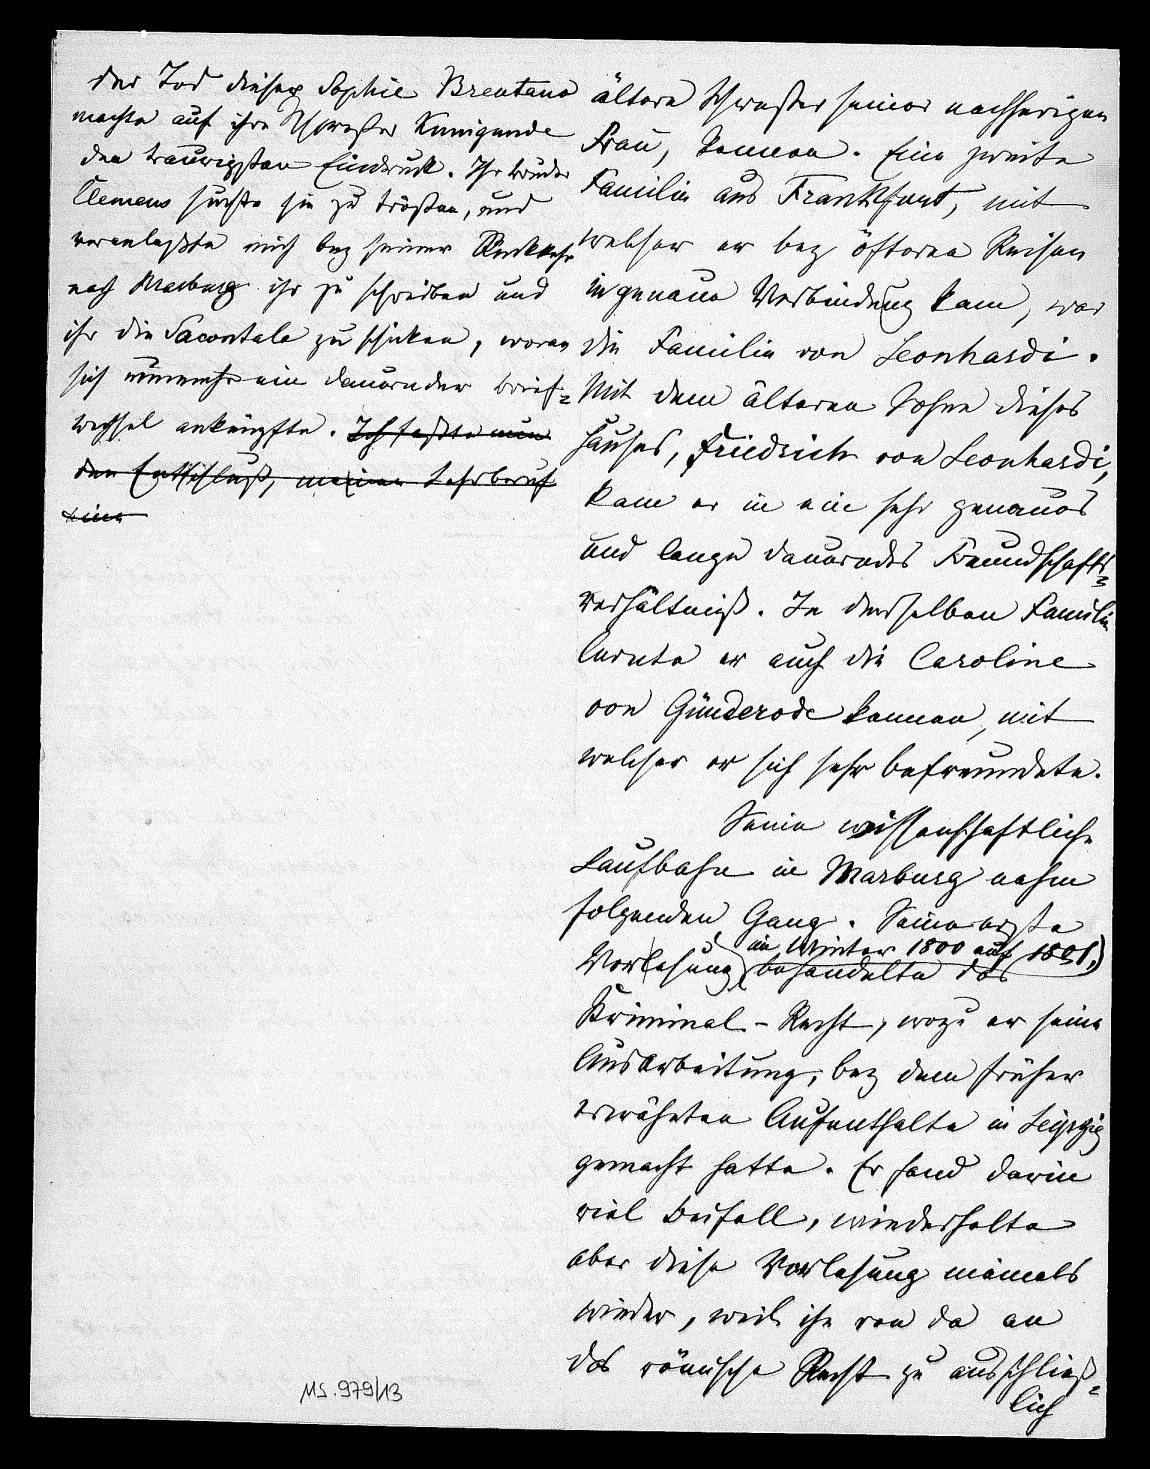 Der Tod dieser Sophie Brentano
machte auf ihre Schwester Kunigunde
den traurigsten Eindruck. Ihr Bruder
Clemens suchte sie zu trösten, und
veranlaßte mich bey seiner Rückkehr
nach Marburg ihr zu schreiben und
ihr die Sacontala zu schicken, woran
sich nunmehr ein dauernder Brief-
wechsel anknüpfte. Ich faßte nun
den Entschluß, meinen Lehrberuf
eine
ältere Schwester seiner nachherigen
Frau, kennen. Eine zweite
Familie aus Frankfurt, mit
welcher er bey öfteren Reisen
in genaue Verbindung kam, war
die Familie von Leonhardi.
Mit dem älteren Sohne dieses
Hauses, Friedrich von Leonhardi,
kam er in ein sehr genaues
und lange dauerndes Freundschafts-
verhältniß. In derselben Familie
lernte er auch die Caroline
von Günderode kennen, mit
welcher er sich sehr befreundete.
Seine wissenschaftliche
Laufbahn in Marburg nahm
folgenden Gang. Seine erste
im Winter 1800 auf 1801,
Vorlesung behandelte das
Kriminal-Recht, wozu er seine
Ausarbeitung, bey dem früher
erwähnten Aufenthalte in Leipzig
gemacht hatte. Er fand darin
viel Beifall, wiederholte
aber diese Vorlesung niemals
wieder, weil ihn von da an
das römische Recht zu ausschließ-
lich
MS. 979/13